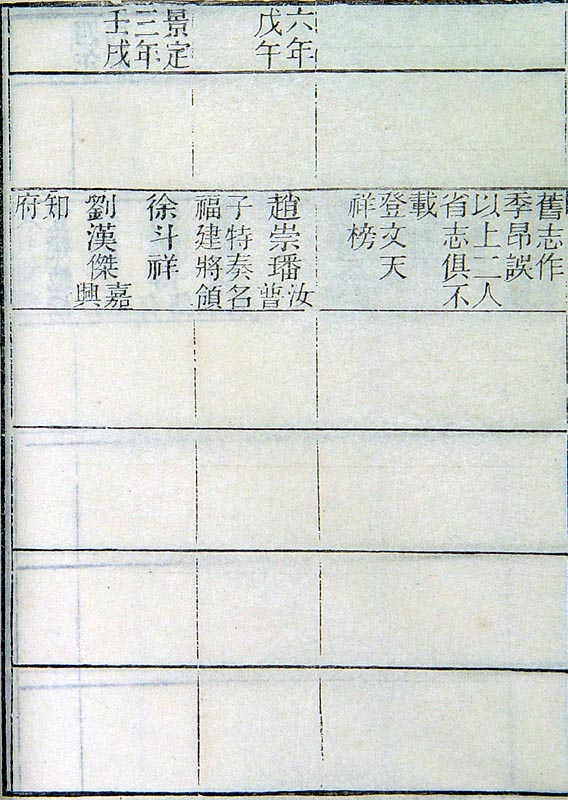 舊志作
季昂誤
以上二人
省志俱不
載
登文天
祥榜
六年
戊午
趙崇璠汝
子特奏名
福建將領
景定
三年
壬戌
徐斗祥
劉漢傑嘉
興
知
府